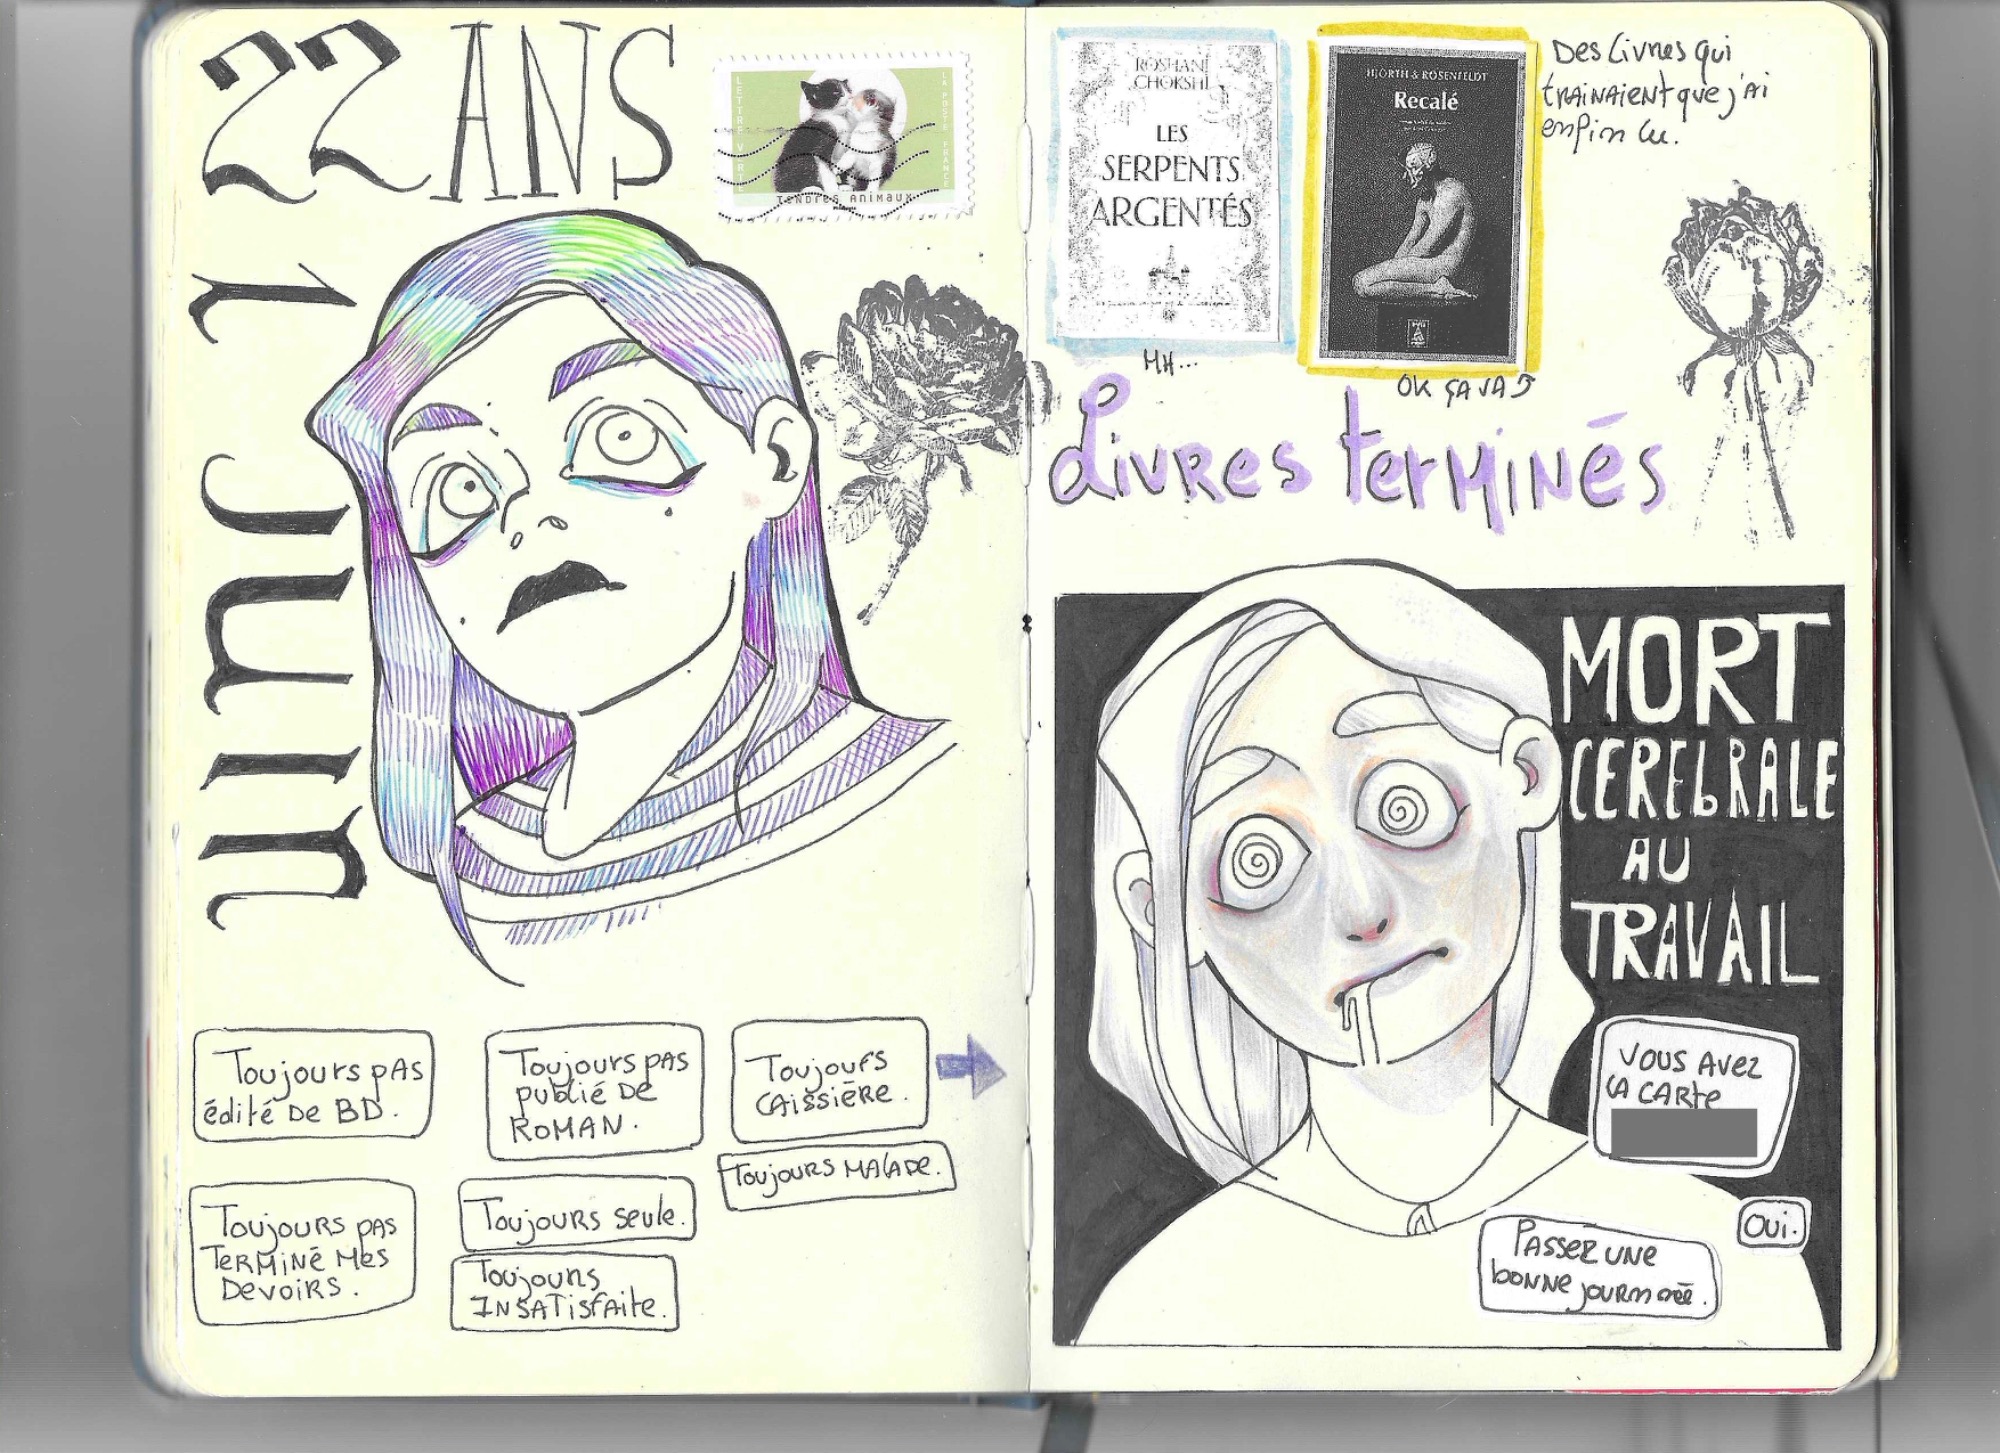 22 ANS
1 JUIN
LETTRE VERTE
LA POSTE FRANCE
TENDRES ANIMAUX
Toujours pas
édité de BD.
Toujours pas
publié de
ROMAN.
Toujours
caissière.
Toujours malade.
Toujours pas
Terminé mes
devoirs.
Toujours seule.
Toujours
Insatisfaite.
ROSHANI
CHOKSHI
LES
SERPENTS
ARGENTÉS
MH...
HJORTH & ROSENFELDT
Recalé
OK ça va
Des livres qui
trainaient que j'ai
enfin lu.
Livres terminés
MORT
CEREbRALE
AU
TRAVAIL
Vous avez
la carte
Oui.
Passez une
bonne journée.